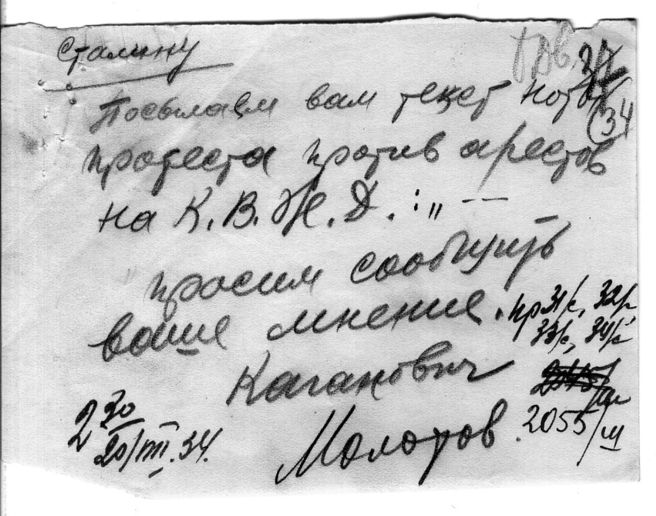 Сталину
Посылаем вам текст ноты
34
протеста против арестов
на К.В.Ж.Д. :„ — —
просим сообщить
ваше мнение.
пр 31/с, 32/с,
33/с, 34/с
Каганович
Молотов.
2055/ш
2 30
20/VIII.34.